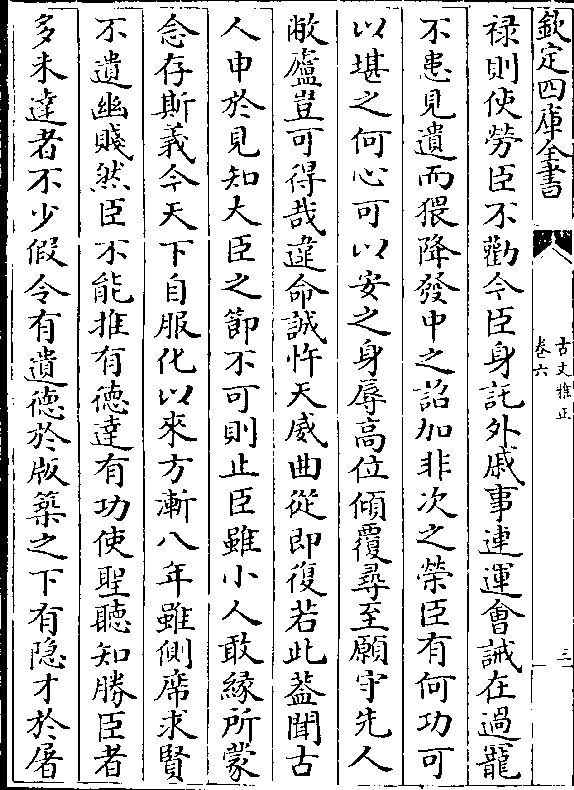 欽定四庫全書
古文雅正
卷六
三
祿則使勞臣不勸今臣身託外戚事連運會誡在過寵
不患見遺而猥降發中之詔加非次之榮臣有何功可
以堪之何心可以安之身辱高位傾覆尋至願守先人
敝廬豈可得哉違命誠忤天威曲從即復若此蓋聞古
人申於見知大臣之節不可則止臣雖小人敢緣所蒙
念存斯義今天下自服化以來方漸八年雖側席求賢
不遺幽賤然臣不能推有德達有功使聖聽知勝臣者
多未達者不少假令有遺德於版築之下有隐才於屠